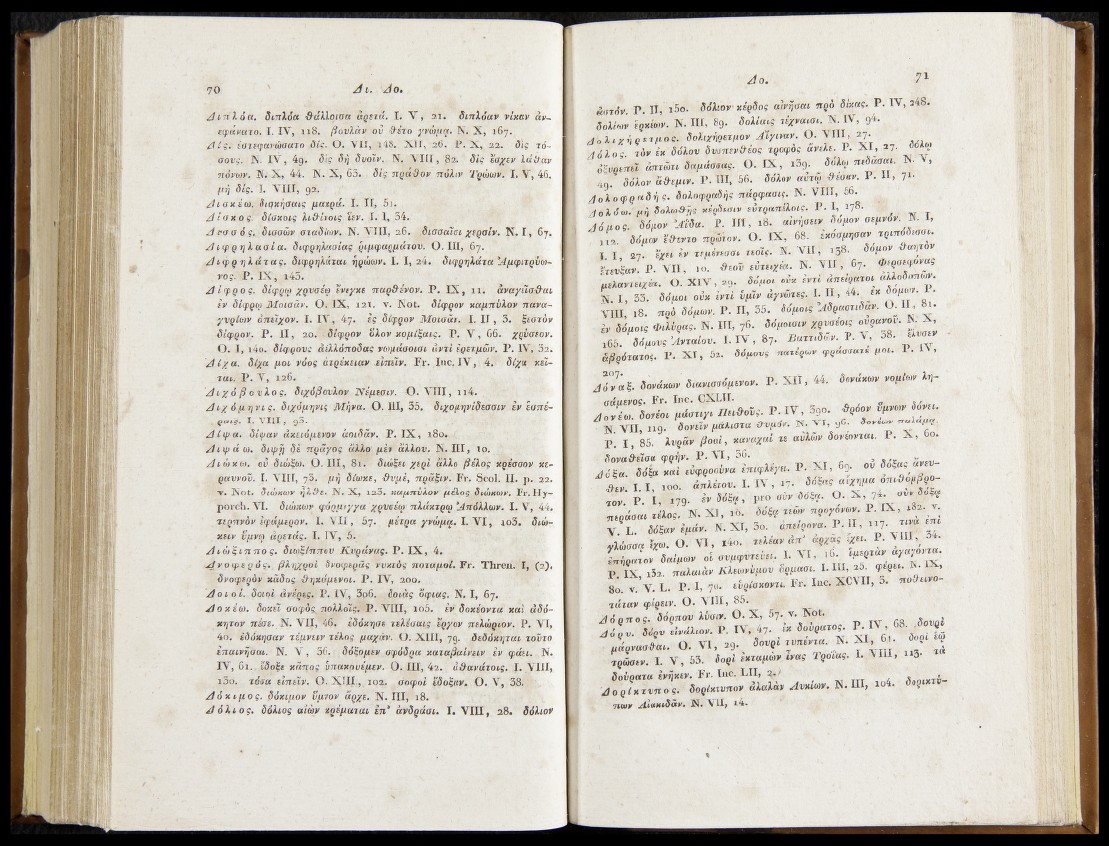 70 Δι. Δο.
Διπλόα. διπλόα θάλλοισα ἀρετά. I. V, 21. διπλόαν νίκαν ἀν-
εφάνατο. I. IV, 118. βουλὰν οὐ θέτο γνώμᾳ. N. X, 167.
Δίς. ἐστεφανώσατο δίς. O. VII, 148. XII, 26. P. X, 22. δὶς τό-
σους. N. IV, 49. δὶς δὴ δυοῖν. N. VIII, 82. δὶς ἔσχεν λάθαν
πόνων. N. X, 44. N. X, 63. δὶς πράθον πόλιν Τρώων. I. V, 46.
μὴ δίς. I. VIII, 92.
Δισκέω. δισκήσαις μακρά. I. II, 51.
Δίσκος. δίσκοις λιθίνοις ἵεν. I. I, 34.
Δισσός. δισσῶν σταδίων. N. VIII, 26. δισσαῖσι χερσίν. N. I, 67.
Διφρηλασία. διφρηλασίας ῥιμφαρμάτου. O. III, 67.
Διφρηλάτας. διφρηλάται ἡρώων. I. I, 24. διφρηλάτα Ἀμφιτρύω-
νος. P. IX, 143.
Δίφρος. δίφρῳ χρυσέῳ ἔνεγκε παρθένον. P. IX, 11. ἀναγεῖσθαι
ἐν δίφρῳ Μοισᾶν. O. IX, 121. v. Not. δίφρον καμπύλον πανα-
γυρίων ἀπεῖχον. I. IV, 47. ἐς δίφρον Μοισᾶν. I. II, 3. ξεστὸν
δίφρον. P. II, 20. δίφρον ὅλον κομίξαις. P. V, 66. χρύσεον.
O. I, 140. δίφρους ἀελλόποδας νωμάσοισι ἀντὶ ἐρετμῶν. P. IV, 32.
Δίχα. δίχα μοι νόος ἀτρέκειαν εἰπεῖν. Fr. Inc. IV, 4. δίχα κεῖ-
ται. P. V, 126.
Διχόβουλος. διχόβουλον Νέμεσιν. O. VIII, 114.
Διχόμηνις. διχόμηνις Μήνα. O. III, 35. διχομηνίδεσσιν ἐν ἑσπέ-
ραις. I. VIII, 93.
Δίψα. δίψαν ἀκειόμενον ἀοιδᾶν. P. IX, 180.
Διψάω. διψῇ δὲ πρᾶγος ἄλλο μὲν ἄλλου. N. III, 10.
Διώκω. οὐ διώξω. O. III, 81. διώξει χερὶ ἄλλο βέλος κρέσσον κε-
ραυνοῦ. I. VIII, 73. μὴ δίωκε, θυμέ, πρᾶξιν. Fr. Scol. II. p. 22.
v. Not. διώκων ἦλθε. N. X, 123. καμπύλον μέλος διώκων. Fr. Hy-
porch. VI. διώκων φόρμιγγα χρυσέῳ πλάκτρῳ Ἀπόλλων. I. V, 44.
τερπνὸν ἐφάμερον. I. VII, 57. μέτρα γνώμᾳ. I. VI, 103. διώ-
κειν ὕμνῳ ἀρετάς. I. IV, 5.
Διώξιππος. διωξίππου Κυράνας. P. IX, 4.
Δνοφερός. βληχροὶ δνοφερᾶς νυκτὸς ποταμοί. Fr. Thren. I, (2).
δνοφερὸν κᾶδος θηκάμενοι. P. IV, 200.
Δοιοί. δοιοὶ ἀνέρες. P. IV, 306. δοιὰς ὄφιας. N. I, 67.
Δοκέω. δοκεῖ σοφὸς πολλοῖς. P. VIII, 105. ἐν δοκέοντα καὶ ἀδό-
κητον πέσε. N. VII, 46. ἐδόκησε τελέσαις ἔργον πελώριον. P. VI,
40. ἐδόκησαν τέμνειν τέλος μαχᾶν. O. XIII, 79. δεδόκηται τοῦτο
ἐπαινῆσαι. N. V, 36. δόξομεν σφόδρα καταβαίνειν ἐν φάει. N.
IV, 61. ἔδοξε κᾆπος ὑπακουέμεν. O. III, 42. ἀθανάτοις. I. VIII,
130. τόσα εἰπεῖν. O. XIII, 102. σοφοὶ ἔδοξαν. O. V, 38.
Δόκιμος. δόκιμον ὕμνον ἄρχε. N. III, 18.
Δόλιος. δόλιος αἰὼν κρέμαται ἐπ' ἀνδράσι. I. VIII, 28. δόλιον
Δο. 71
ἀστόν. P. II, 150. δόλιον κέρδος αἰνῆσαι πρὸ δίκας. P. IV, 248.
δολίων ἑρκίων. N. III, 89. δολίαις τέχναισι. N. IV, 94.
Δολιχήρετμος. δολιχήρετμον Αἴγιναν. O. VIII, 27.
Δόλος. τὸν ἐκ δόλου δυσπενθέος τροφὸς ἄνελε. P. XI, 27. δόλῳ
ὀξυρεπεῖ ἀπτῶτι δαμάσσας. O. IX, 139. δόλῳ πεδᾶσαι. N. V,
49. δόλον ἄθεμιν. P. III, 56. δόλον αὐτῷ θέσαν. P. II, 71.
Δολοφραδής. δολοφραδὴς πάρφασις. N. VIII, 56.
Δολόω. μὴ δολωθῇς κέρδεσιν εὐτραπέλοις. P. I, 178.
Δόμος. δόμον Ἀΐδα. P. III, 18. αἰνήσειν δόμον σεμνόν. N. I,
112. δόμον ἔθεντο πρῶτον. O. IX, 68. ἐκόσμησαν τριπόδεσσι.
I. I, 27. ἔχει ἐν τεμένεσσι τεοῖς. N. VII, 138. δόμον θαητὸν
ἔτευξαν. P. VII, 10. θεοῦ εὐτειχέα. N. VII, 67. Φερσεφόνας
μελαντειχέα. O. XIV, 29. δόμοι οὐκ ἐντὶ ἀπείρατοι ἀλλοδαπῶν.
N. I, 33. δόμοι οὐκ ἐντὶ ὑμῖν ἀγνῶτες. I. II, 44. ἐκ δόμων. P.
VIII, 18. πρὸ δόμων. P. II, 35. δόμοις Ἀδραστιδᾶν. O. II, 81.
ἐν δόμοις Φιλύρας. N. III, 76. δόμοισιν χρυσέοις οὐρανοῦ. N. X,
165. δόμους Ἀνταίου. I. IV, 87. Βαττιδᾶν. P. V, 38. ἔλυσεν
ἁβρότατος. P. XI, 52. δόμους πατέρων φράσσατέ μοι. P. IV,
207.
Δόναξ. δονάκων διανισσόμενον. P. XII, 44. δονάκων νομίων λη-
σάμενος. Fr. Inc. CXLII.
Δονέω. δονέοι μάστιγι Πειθοῦς. P. IV, 390. θρόον ὕμνων δόνει.
N. VII, 119. δονεῖν μάλιστα θυμόν. N. VI, 96. δονέων παλάμᾳ.
P. I, 85. λυρᾶν βοαί, καναχαί τε αὐλῶν δονέονται. P. X, 60.
δοναθεῖσα φρήν. P. VI, 36.
Δόξα. δόξα καὶ εὐφροσύνα ἐπιφλέγει. P. XI, 69. οὐ δόξας ἄνευ-
θεν. I. I, 100. ἀπλέτου. I. IV, 17. δόξας αὔχημα ὀπιθόμβρο-
τον. P. I, 179. ἐν δόξᾳ, pro σὺν δόξᾳ. O. X, 74. σὺν δόξᾳ
περάσαι τέλος. N. XI, 10. δόξᾳ τεῶν προγόνων. P. IX, 182. v.
V. L. δόξαν ἐμάν. N. XI, 30. ἀπείρονα. P. II, 117. τινὰ ἐπὶ
γλώσσᾳ ἔχω. O. VI, 140. τελέαν ἀπ' ἀρχᾶς ἔχει. P. VIII, 34.
ἐπήρατον δαίμων οἱ συμφυτεύει. I. VI, 16. ἱμερτὰν ἀγαγόντα.
P. IX, 132. παλαιὰν Κλεωνύμου ἅρμασι. I. III, 25. φέρει. N. IX,
80. v. V. L. P. I, 70. εὑρίσκοντι. Fr. Inc. XCVII, 3. ποθεινο-
τάταν φέρειν. O. VIII, 85.
Δόρπος. δόρπου λύσιν. O. X, 57. v. Not.
Δόρυ. δόρυ εἰνάλιον. P. IV, 47. ἐκ δούρατος. P. IV, 68. δουρὶ
μάρνασθαι. O. VI, 29. δουρὶ τυπέντα. N. XI, 61. δορὶ ἑῷ
τρῶσεν. I. V, 53. δορὶ ἐκταμὼν ἶνας Τροΐας. I. VIII, 113. τὰ
δούρατα ἐνῆκεν. Fr. Inc. LII, 2.
Δορίκτυπος. δορίκτυπον ἀλαλὰν Λυκίων. N. III, 104. δορικτύ-
πων Αἰακιδᾶν. N. VII, 14.